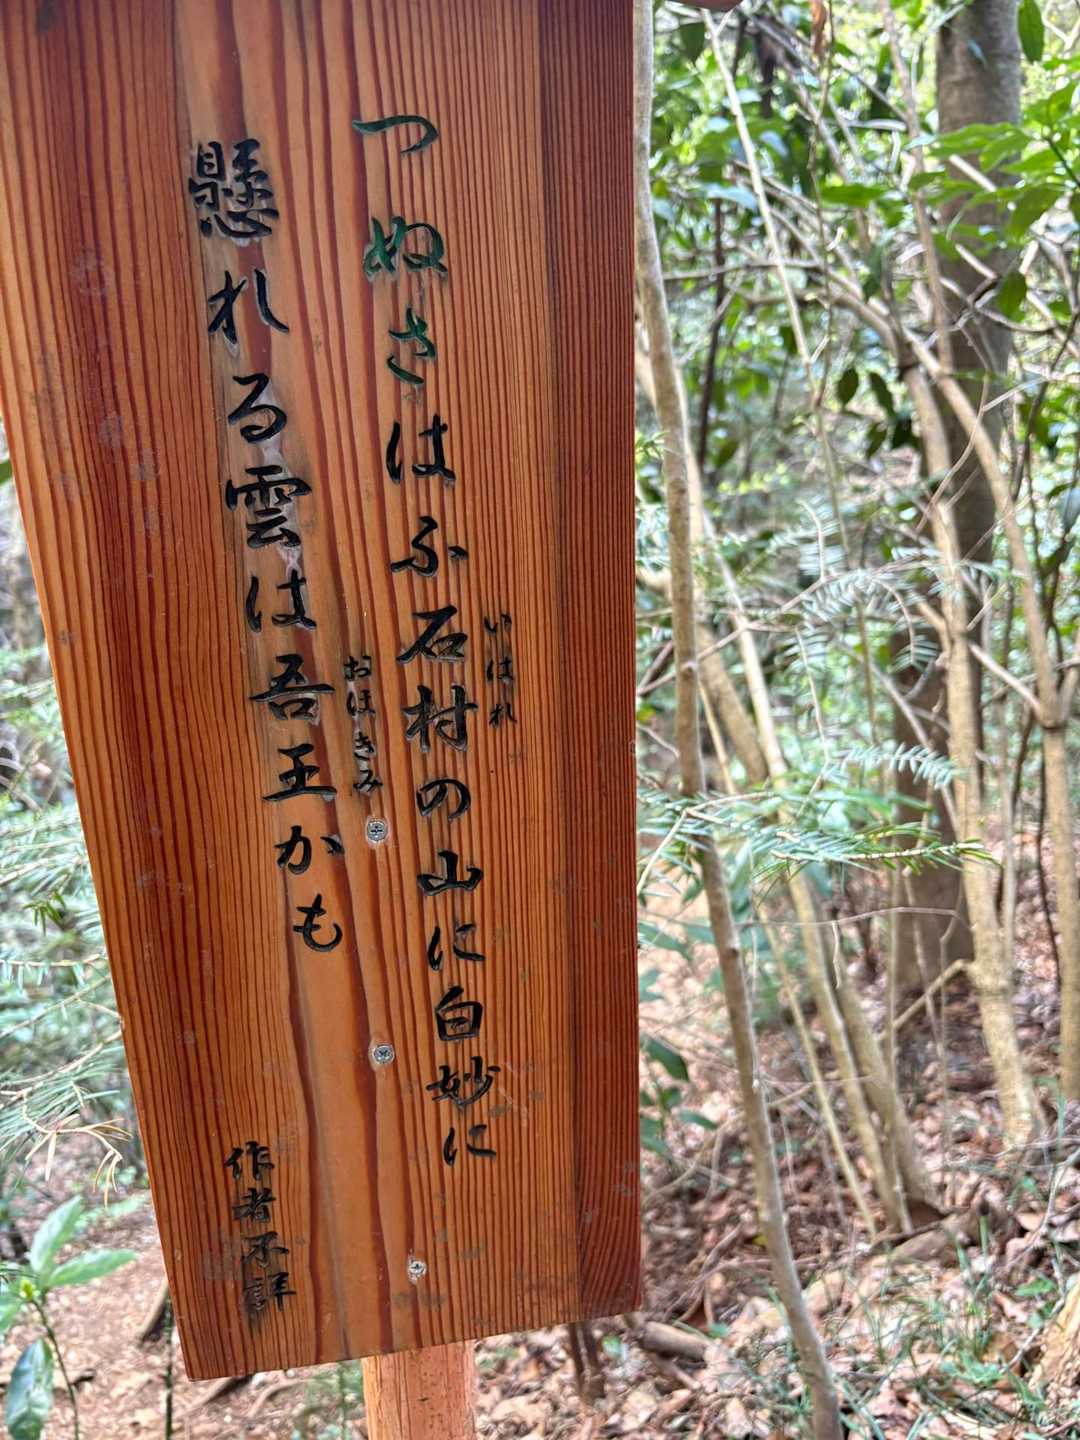 つぬさはふ石村の山に白妙に
いはれ
懸れる雲は吾王かも
おほきみ
作者不詳